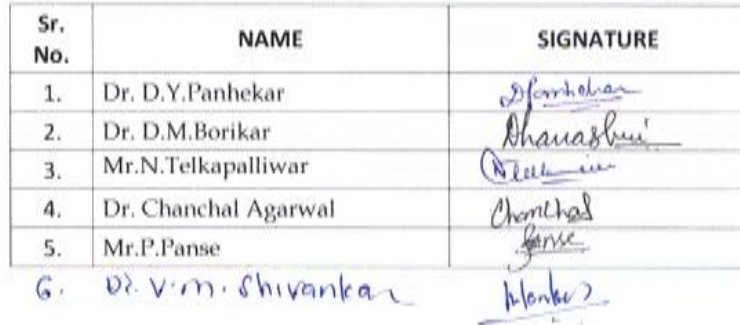 Sr. No. NAME SIGNATURE
1. Dr. D.Y.Panhekar
2. Dr. D.M.Borikar Dhanashri
3. Mr.N.Telkapalliwar
4. Dr. Chanchal Agarwal Chanchal
5. Mr.P.Panse Panse
6. Dr. V.M. Shivankar